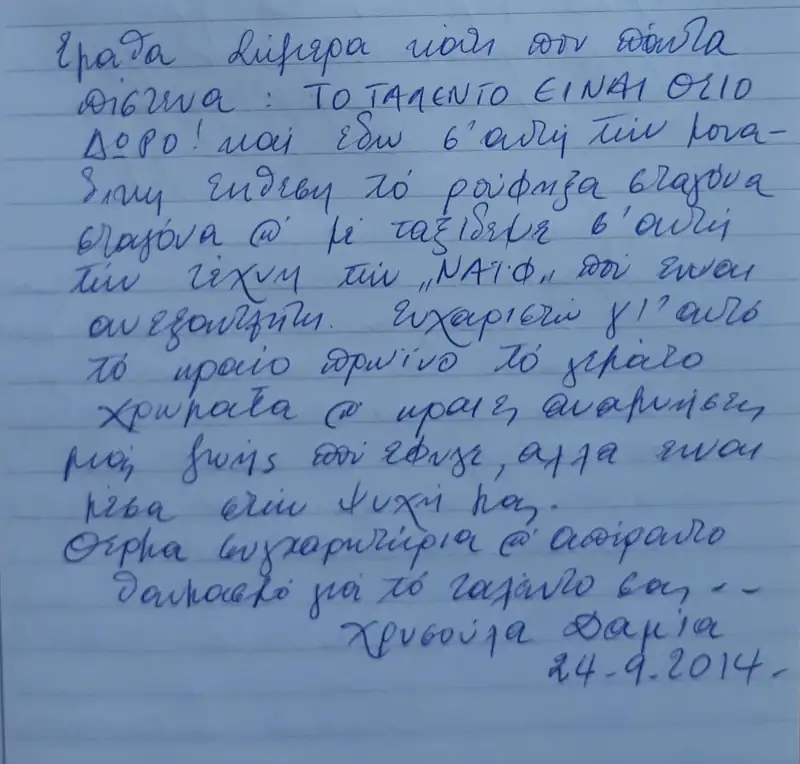 Έμαθα σήμερα κάτι που πάντα
πίστευα: ΤΟ ΤΑΛΕΝΤΟ ΕΙΝΑΙ ΘΕΙΟ
ΔΩΡΟ! και εδω σ' αυτή τήν μονα-
δικη εκθεση τό ρούφηξα σταγόνα
σταγόνα @ μέ ταξίδεψε σ' αυτή
τήν τέχνη τήν „ΝΑΪΦ„ πού ειναι
ανεξαντλητη. Ευχαριστώ γι' αυτό
τό ωραίο πρωϊνό τό γεμάτο
χρωματα @ ωραιες αναμνήσεις
μιάς ζωής πού έφυγε, αλλα ειναι
μέσα στήν ψυχή μας.
Θερμα συγχαρητήρια @ απέραντο
θαυμασμό γιά τό ταλέντο σας --
Χρυσούλα Δαμία
24-9-2014-